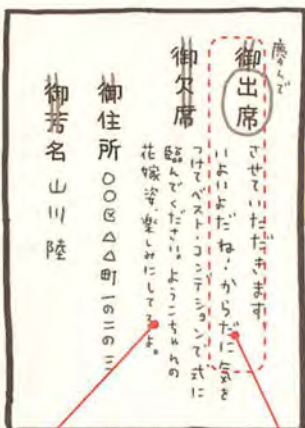 慶んで
御出席 させていただきます
いよいよだね!からだに気を
御欠席
つけてベスト・コンディションで式に
臨んでください。ようこちゃんの
花嫁姿、楽しみにしてるよ。
御住所 〇〇区△△町一の二の三
御芳名 山川陸